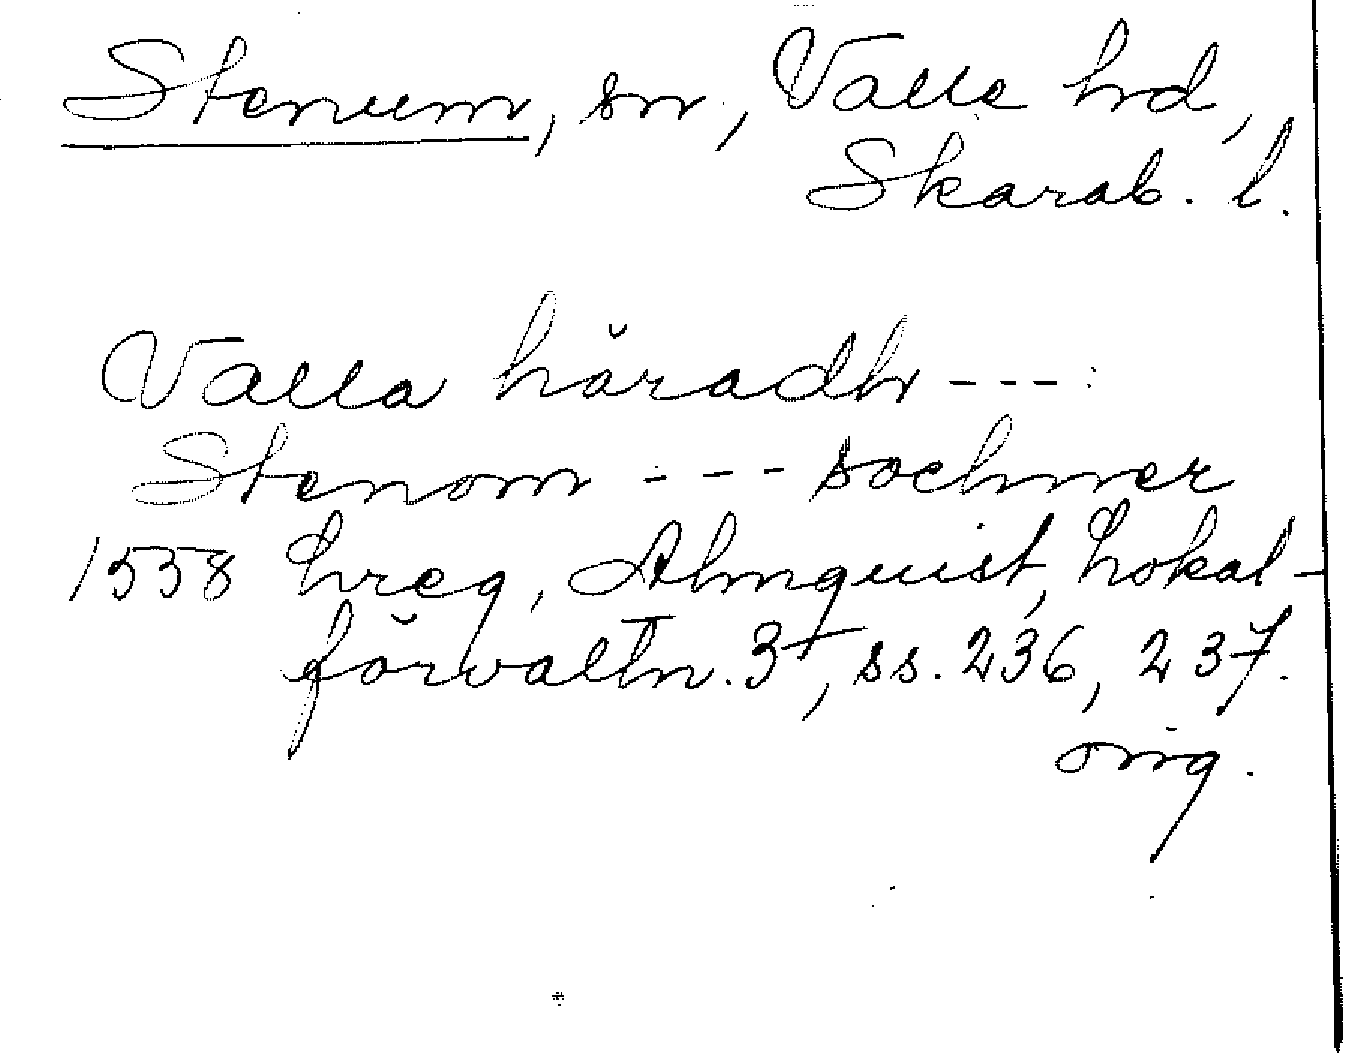 Stenum, sn, Valle hd,
Skarab. l.
Valla häradh ---
Stenom --- sochner
1558 hreg, Almquist, Lokal-
förvaltn. 3+, ss. 236, 237.
orig.